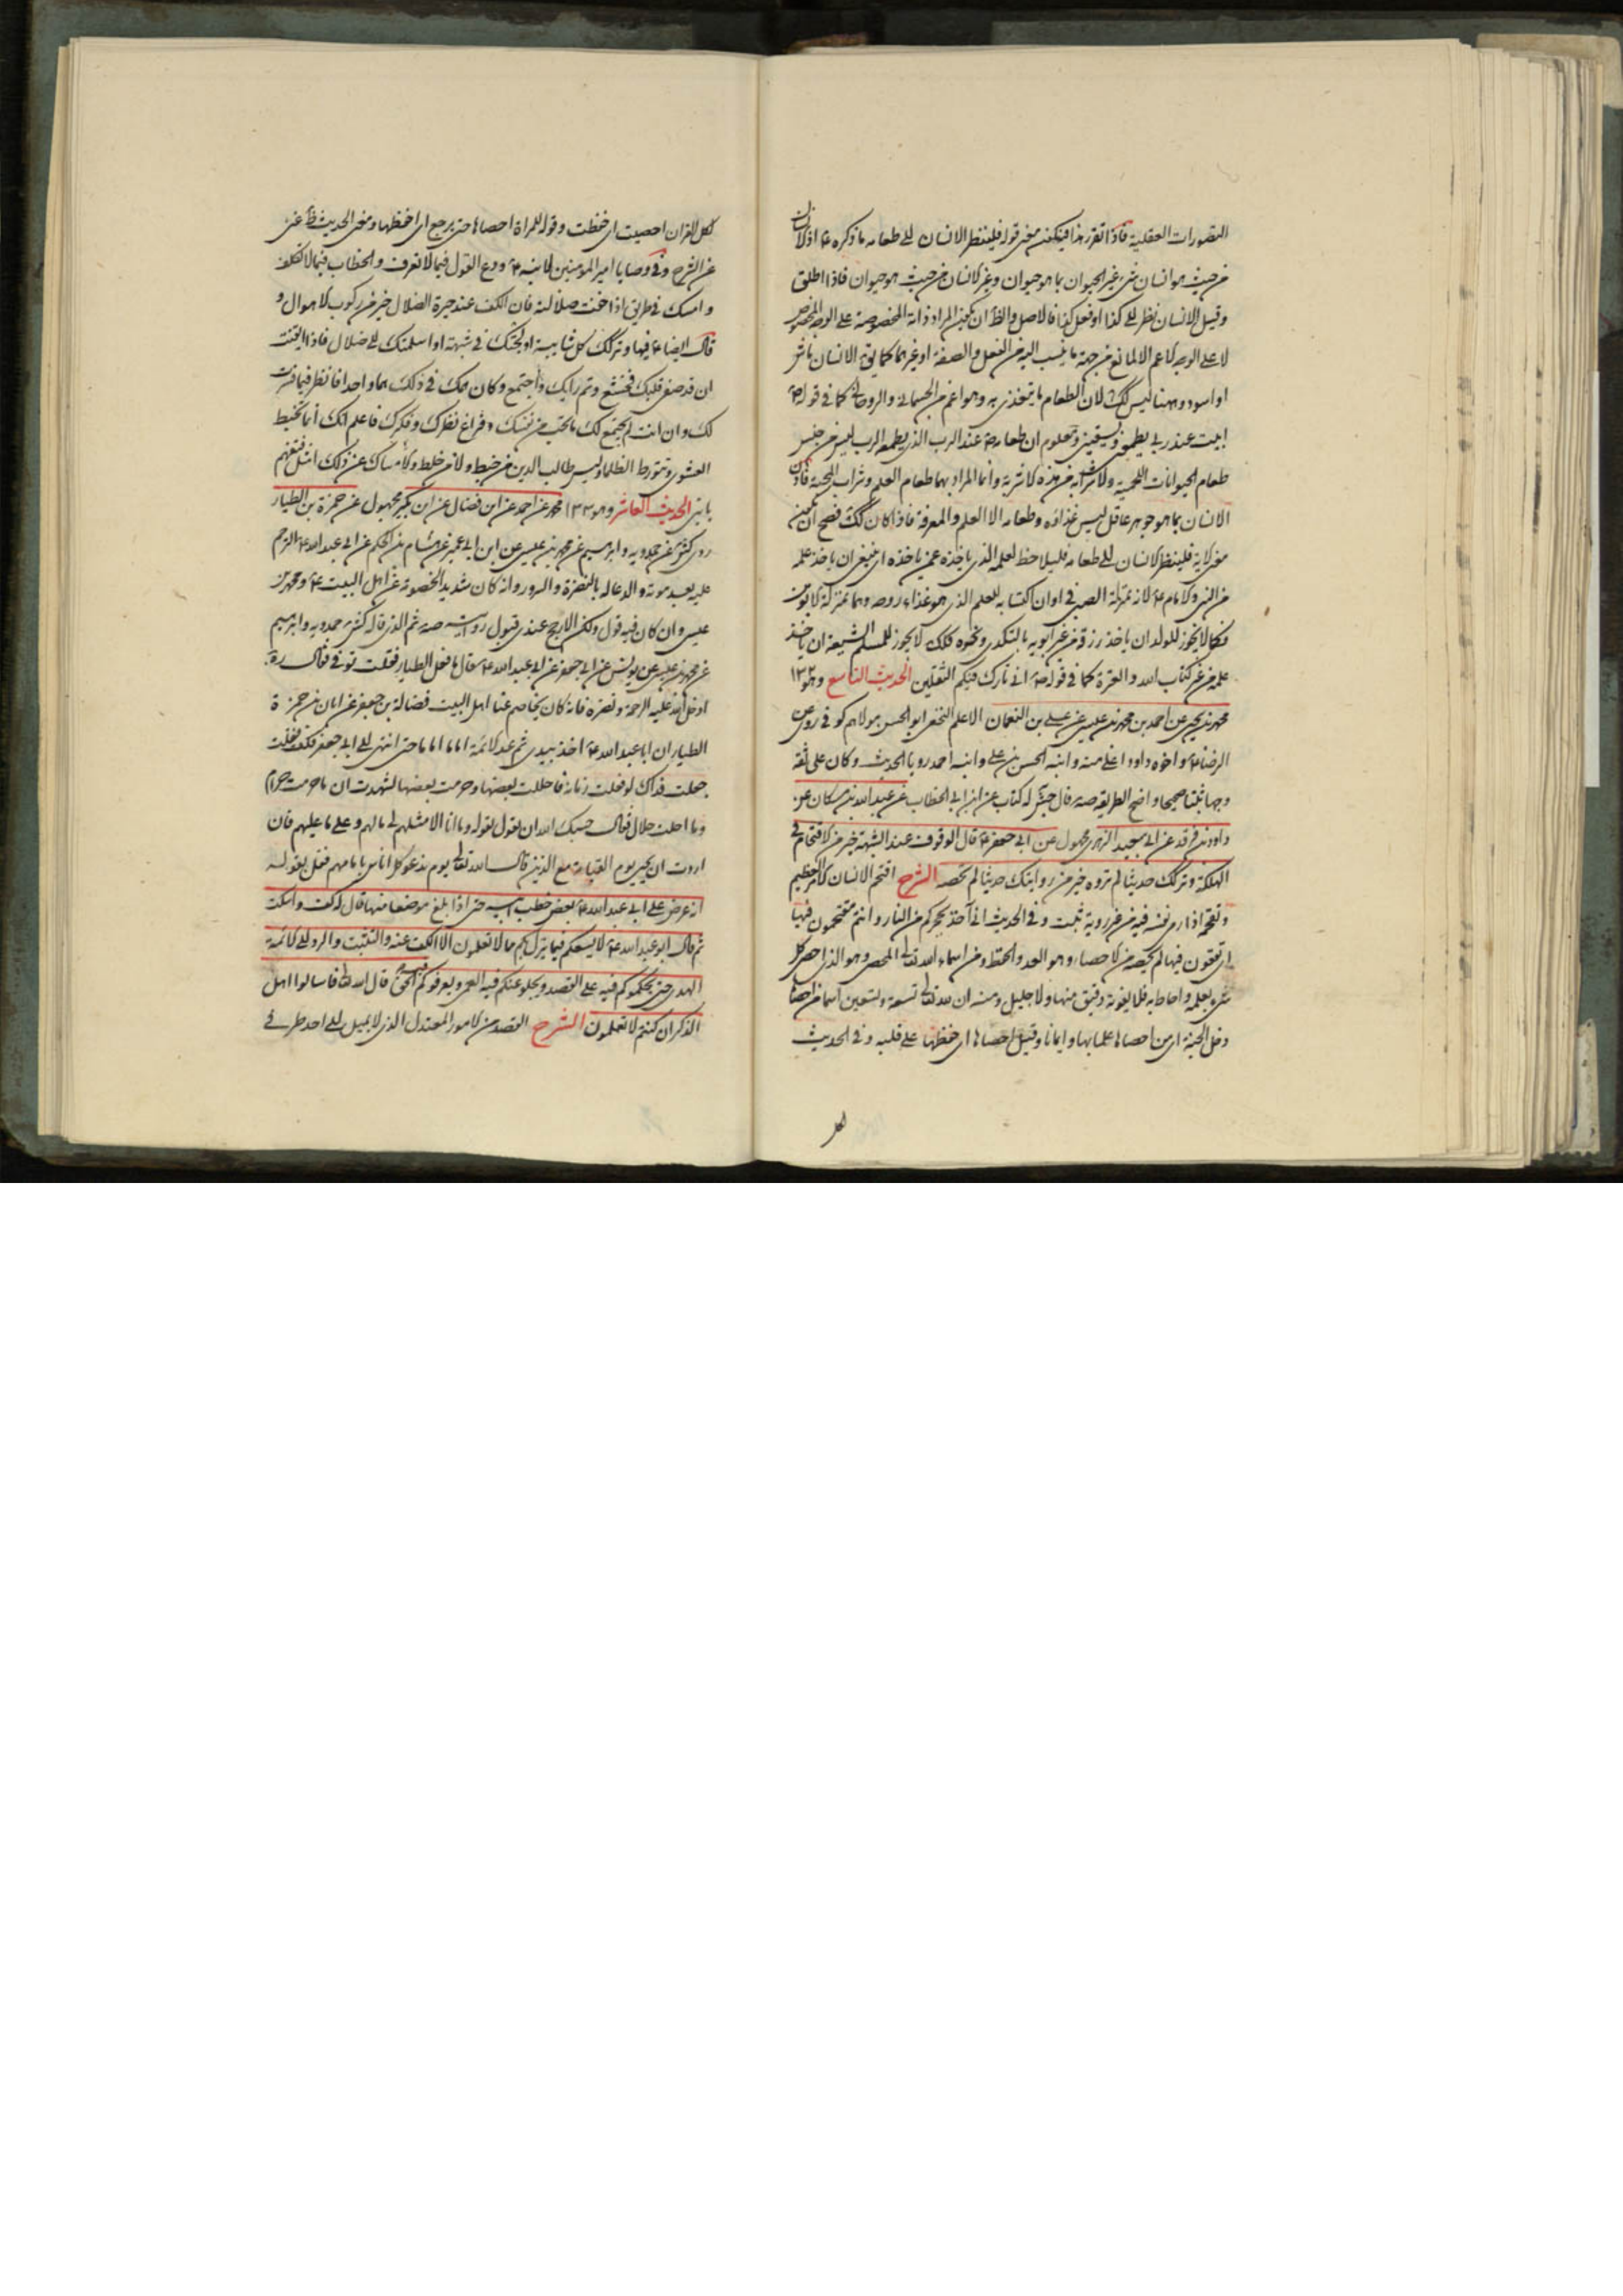 التصورات العقلية فاذا تقرر هذا فيكون معنى قوله فلينظر الانسان الى طعامه ما ذكره ع اذ الانسان
من حيث هو انسان شيء غير الحيوان بما هو حيوان وغير الانسان من حيث هو حيوان فاذا اطلق
وقيل الانسان نظر الى كذا او فعل كذا فالاصل والظ ان يكون المراد ذاته المخصوصة على الوجه المخصوص
لا على الوجه الاعم الا لمانع من جهة ما ينسب اليه من الفعل والصفة او غيرهما كما يق الانسان ماش
او اسود وههنا ليس كك لان الطعام ما يتغذى به وهو اعم من الجسماني والروحاني كما في قوله ص
ابيت عند ربي يطعمني ويسقيني ومعلوم ان طعامه ص عند الرب الذي يطعمه الرب ليس من جنس
طعام الحيوانات اللحمية ولا شرابه من هذه الاشربة وانما المراد بهما طعام العلم وشراب المحبة فاذن
الانسان بما هو جوهر عاقل ليس غذاؤه وطعامه الا العلم والمعرفة فاذا كان كك فصح ان يكون
معنى الاية فلينظر الانسان الى طعامه فليلاحظ لعلمه الذي ياخذه عمن ياخذه اي ينبغي ان ياخذ علمه
من النبي والامام ع لانه بمنزلة الصبي في اوان اكتسابه للعلم الذي هو غذاء روحه وهما بمنزلة الابوين
وكما لا يجوز للولد ان ياخذ رزقه من غير ابويه بالتكدي ونحوه فكك لا يجوز للمسلم الشيعة ان ياخذ
علمه من غير كتاب الله والعترة كما في قوله ص اني تارك فيكم الثقلين الحديث التاسع وهو ١٣٢
محمد بن يحيى عن احمد بن محمد بن عيسى عن علي بن النعمان الاعلم النخعي ابو الحسن مولاهم كوفي روى عن
الرضا ع واخوه داود اعلى منه وابنه الحسن بن علي وابنه احمد رويا الحديث وكان علي ثقة
وجها ثبتا صحيحا واضح الطريقة صه قال جش له كتاب عن ابن ابي الخطاب عن عبد الله بن مسكان عن
داود بن فرقد عن ابي سعيد الزهري مجهول عن ابي جعفر ع قال الوقوف عند الشبهة خير من الاقتحام في
الهلكة وتركك حديثا لم تروه خير من روايتك حديثا لم تحصه الشرح اقتحم الانسان الامر العظيم
وتقحمه اذا رمى نفسه فيه من غير روية وتثبت وفي الحديث اني آخذ بحجزكم من النار وانتم تقتحمون فيها
اي تقعون فيها لم تحصه من الاحصاء وهو العد والحفظ ومن اسماء الله تعالى المحصي وهو الذي احصى كل
شيء بعلمه واحاط به فلا يفوته دقيق منها ولا جليل ومنه ان لله تعالى تسعة وتسعين اسما من احصاها
دخل الجنة اي من احصاها علما بها وايمانا وقيل احصاها اي حفظها على قلبه وفي الحديث
اكل القران احصيت اي حفظت وقوله للمراة احصاها حتى يرجع اي احفظها ومعنى الحديث ظ غني
عن الشرح وفي وصايا امير المؤمنين لابنه ع ودع القول فيما لا تعرف والخطاب فيما لا تكلف
وامسك عن طريق اذا خفت ضلالته فان الكف عند حيرة الضلال خير من ركوب الاهوال و
قال ايضا ع فيها وتركك كل شايبة اولجتك في شبهة او اسلمتك الى ضلال فاذا ايقنت
ان قد صفى قلبك فخشع وتم رايك واجتمع وكان همك في ذلك هما واحدا فانظر فيما فسرت
لك وان انت لم يجتمع لك ما تحب من نفسك وفراغ نظرك وفكرك فاعلم انك انما تخبط
العشوى وتتورط الظلماء وليس طالب الدين من خبط ولا من خلط والامساك عن ذلك امثل فتفهم
يا بني الحديث العاشر وهو ١٣٣ محمد عن احمد عن ابن فضال عن ابن بكير مجهول عن حمزة بن الطيار
روى كش عن حمدويه وابرهيم عن محمد بن عيسى عن ابن ابي عمير عن هشام بن الحكم عن ابي عبد الله ع الترحم
عليه بعد موته والدعا له بالنضرة والسرور وانه كان شديد الخصومة عن اهل البيت ع ومحمد بن
عيسى وان كان فيه قول ولكن الارجح عندي قبول روايته صه ثم الذي قاله كش حمدويه وابرهيم
عن محمد بن عيسى عن يونس عن ابي جعفر عن ابي عبد الله ع قال ما فعل الطيار فقلت توفي فقال ره
ادخل الله عليه الرحمة ونضره فانه كان يخاصم عنا اهل البيت فضالة بن جعفر عن ابان عن حمزة
الطيار ان ابا عبد الله ع اخذ بيدي ثم عد الائمة اماما اماما حتى انتهى الى ابي جعفر فكف فقلت
جعلت فداك لو فلقت رمانة فاحللت بعضها وحرمت بعضها لشهدت ان ما حرمت حرام
وما احللت حلال فقال حسبك الله ان تقول بقوله وما انا الا مثلهم لي ما لهم وعلي ما عليهم فان
اردت ان تجيء يوم القيامة مع الذين قال الله تعالى يوم ندعو كل اناس بامامهم فقل بقوله
انه عرض على ابي عبد الله ع بعض خطب ابيه حتى اذا بلغ موضعا منها قال له كف واسكت
ثم قال ابو عبد الله ع لا يسعكم فيما ينزل بكم مما لا تعلمون الا الكف عنه والتثبت والرد الى الائمة
الهدى حتى يحملوكم فيه على القصد ويجلو عنكم فيه العمى ويعرفوكم فيه الحق قال الله تعالى فاسالوا اهل
الذكر ان كنتم لا تعلمون الشرح القصد من الامور المعتدل الذي لا يميل الى احد طرفي